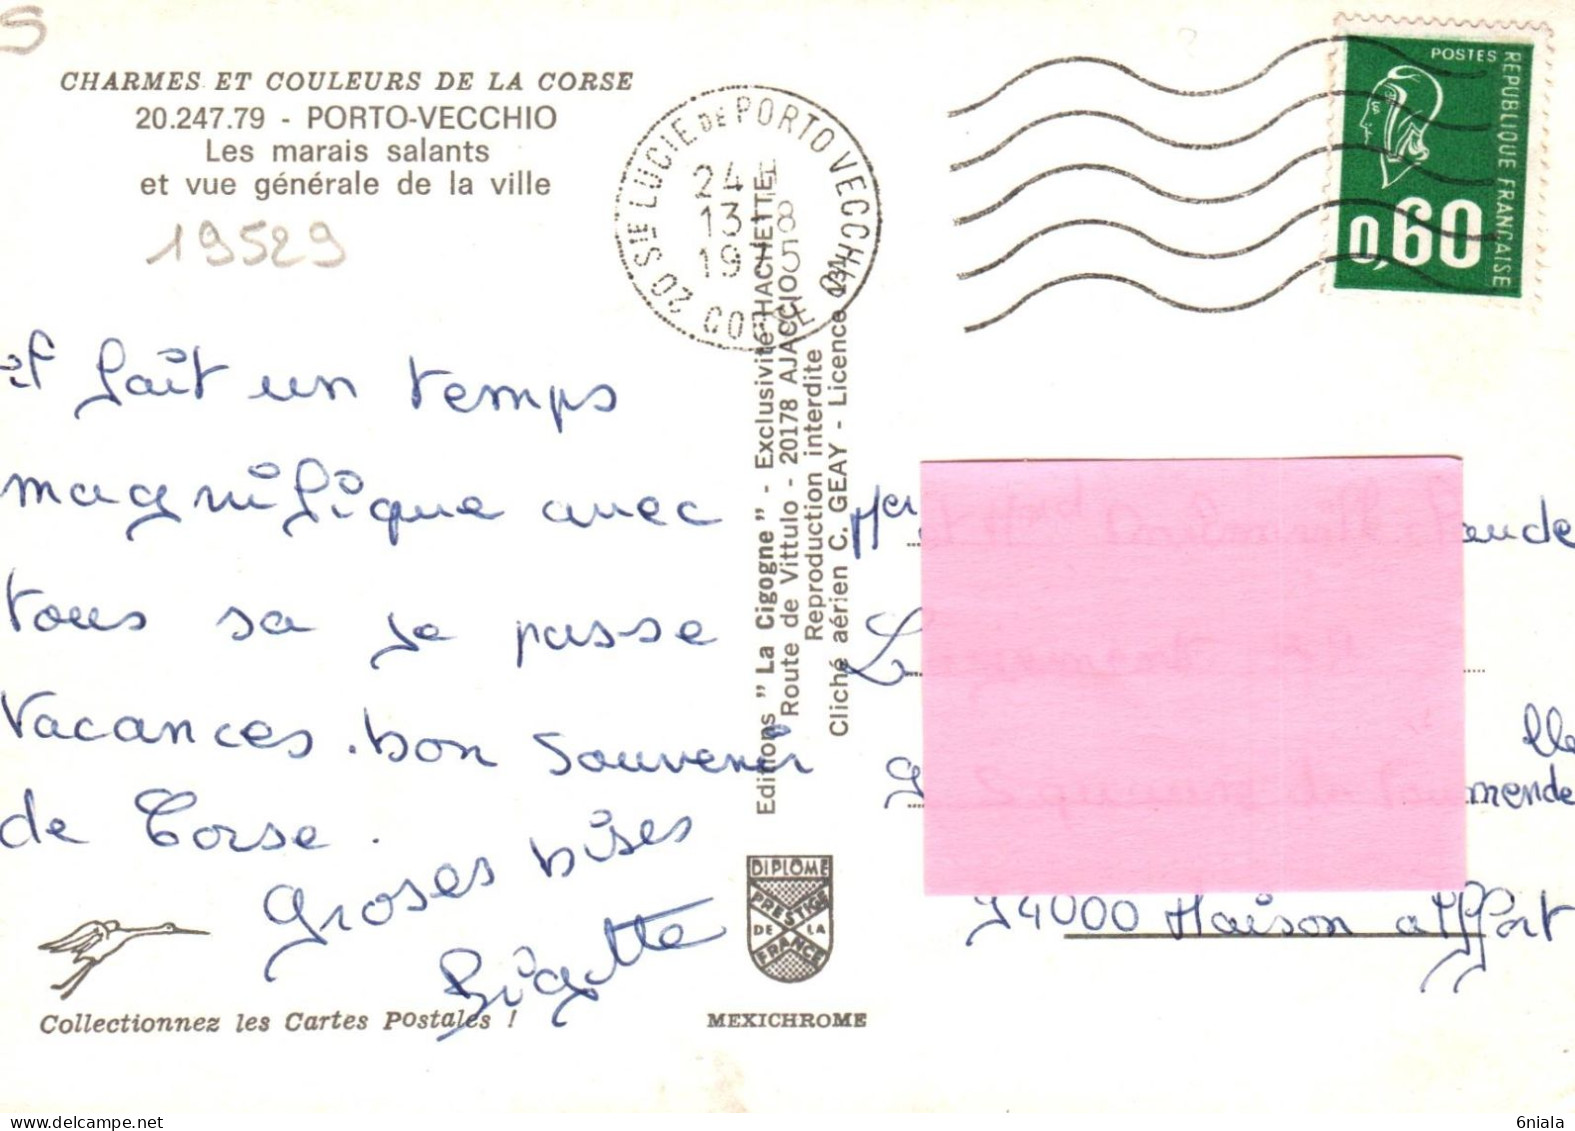 S
CHARMES ET COULEURS DE LA CORSE
20.247.79 - PORTO-VECCHIO
Les marais salants
et vue générale de la ville
19529
il fait un temps
magnifique avec
tous sa je passe
Vacances. bon souvenir
de Corse.
groses bises
Brigitte
Collectionnez les Cartes Postales !
20 STE LUCIE DE PORTO VECCHIO
24H
13 8
19 5
CORSE
Editions " La Cigogne " - Exclusivité HACHETTE
Route de Vittulo - 20178 AJACCIO
Reproduction interdite
Cliché aérien C. GEAY - Licence 234
DIPLOME
PRESTIGE
DE LA
FRANCE
MEXICHROME
POSTES
REPUBLIQUE FRANÇAISE
0,60
Mer
aude
L
lle
g
mende
94000 Maison alffort
6niala